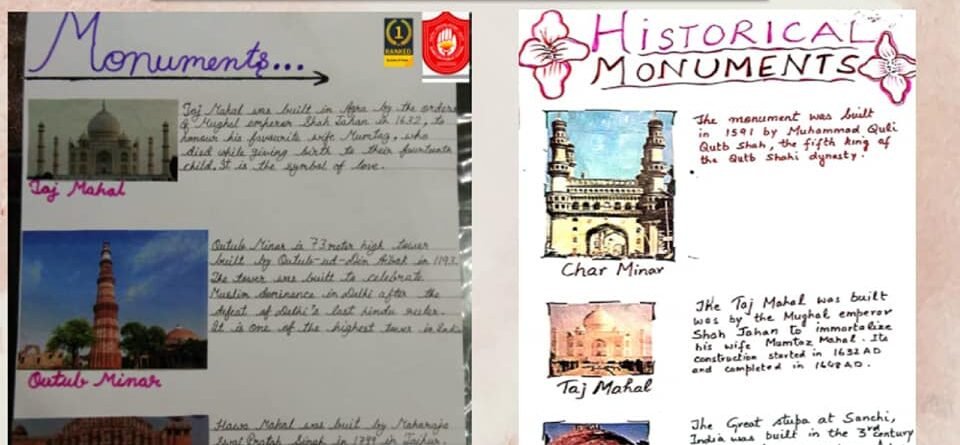 Monuments...
1
RANKED
Taj Mahal was built in Agra by the orders
of Mughal emperor Shah Jahan in 1632, to
honour his favourite wife Mumtag, who
died while giving birth to their fourteenth
child. It is the symbol of love.
Taj Mahal
Qutub Minar is 73 meter high tower
built by Qutub-ud-Din Aibak in 1193.
The tower was built to celebrate
Muslim dominance in Delhi after the
defeat of Delhi's last hindu ruler.
It is one of the highest tower in India
Qutub Minar
Hawa Mahal was built by Maharaja
Swai Pratab Singh in 1799 in Jaipur.
HISTORICAL
MONUMENTS
The monument was built
in 1591 by Muhammad Quli
Qutb Shah, the fifth king of
the Qutb Shahi dynasty.
Char Minar
The Taj Mahal was built
was by the Mughal emperor
Shah Jahan to immortalize
his wife Mumtaz Mahal. Its
construction started in 1632 AD
and completed in 1648 AD.
Taj Mahal
The Great stupa at Sanchi,
India was built in the 3rd century